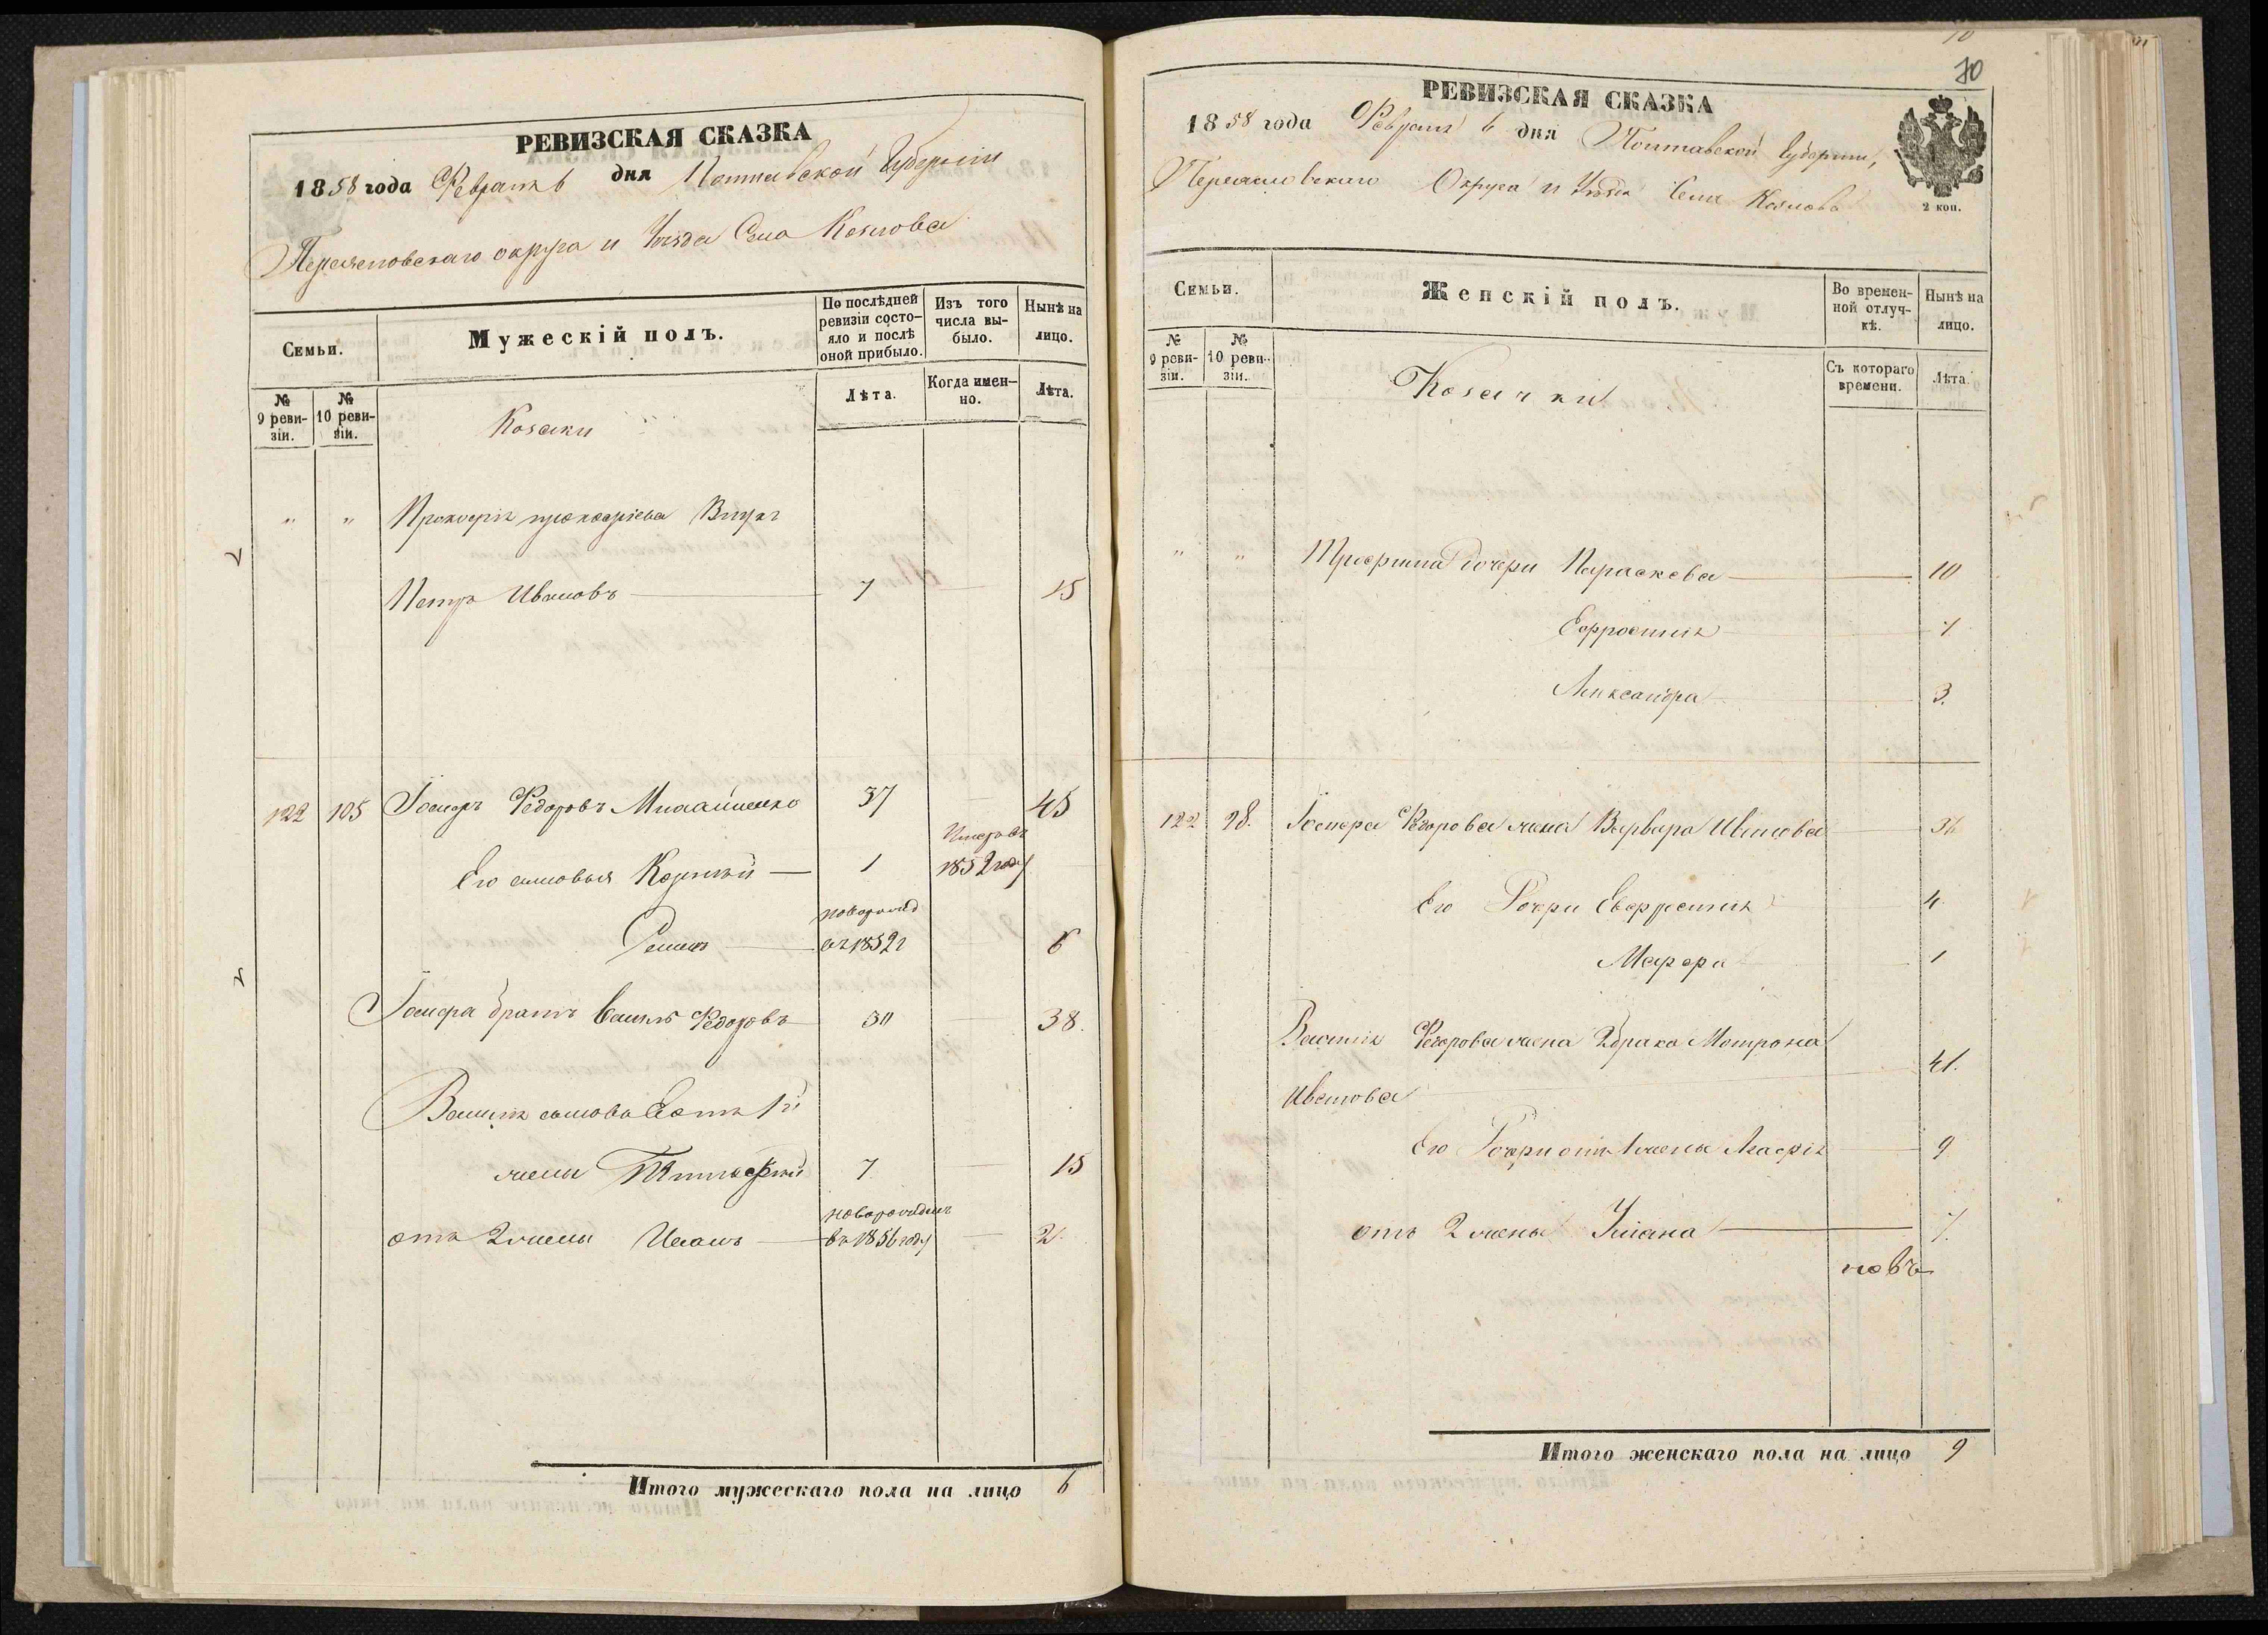 РЕВИЗСКАЯ СКАЗКА
1858 года Февраля 6 дня Полтавской Губернии
Переяславскаго округа и Уѣзда Села Козлова
Семьи.
Мужескій полъ.
По послѣдней ревизіи состояло и послѣ оной прибыло.
Изъ того числа выбыло.
Нынѣ на лицо.
№ 9 ревизіи.
№ 10 ревизіи.
Козаки
Лѣта.
Когда именно.
Лѣта.
" " Прокофія Внукъ
Петръ Ивановъ 7 15
122 105 Іосифъ Федоровъ 37 45
Его сыновья Корнѣй 1 Умеръ въ 1852 году
новорожд
въ 1852 г 6
Іосифа братъ Василь Федоровъ 30 38.
Василя сынова отъ 1й
жены Тимофѣй 7 15
новорожден
отъ 2 жены Иванъ въ 1856 году 2.
Итого мужескаго пола на лицо 6
10
70
РЕВИЗСКАЯ СКАЗКА
1858 года Февраля 6 дня Полтавской Губернии,
Переяславскаго Округа и Уѣзда Села Козлова
2 коп.
Семьи.
Женскій полъ.
Во временной отлучкѣ.
Нынѣ на лицо.
№ 9 ревизіи.
№ 10 ревизіи.
Козачки
Съ котораго времени.
Лѣта.
" " Трофима дочери Параскева 10
Ефросинія 7
Александра 3.
122 98. Іосифа Федорова жена Варвара Иванова
Его Дочери Евфросинія 4
Марфа 1
Василія Федорова жена 2 брака Мотрона
Иванова 41.
Его Дочери отъ 1 жены Агафія 9
отъ 2 жены Уліана 7.
новъ
Итого женскаго пола на лицо 9